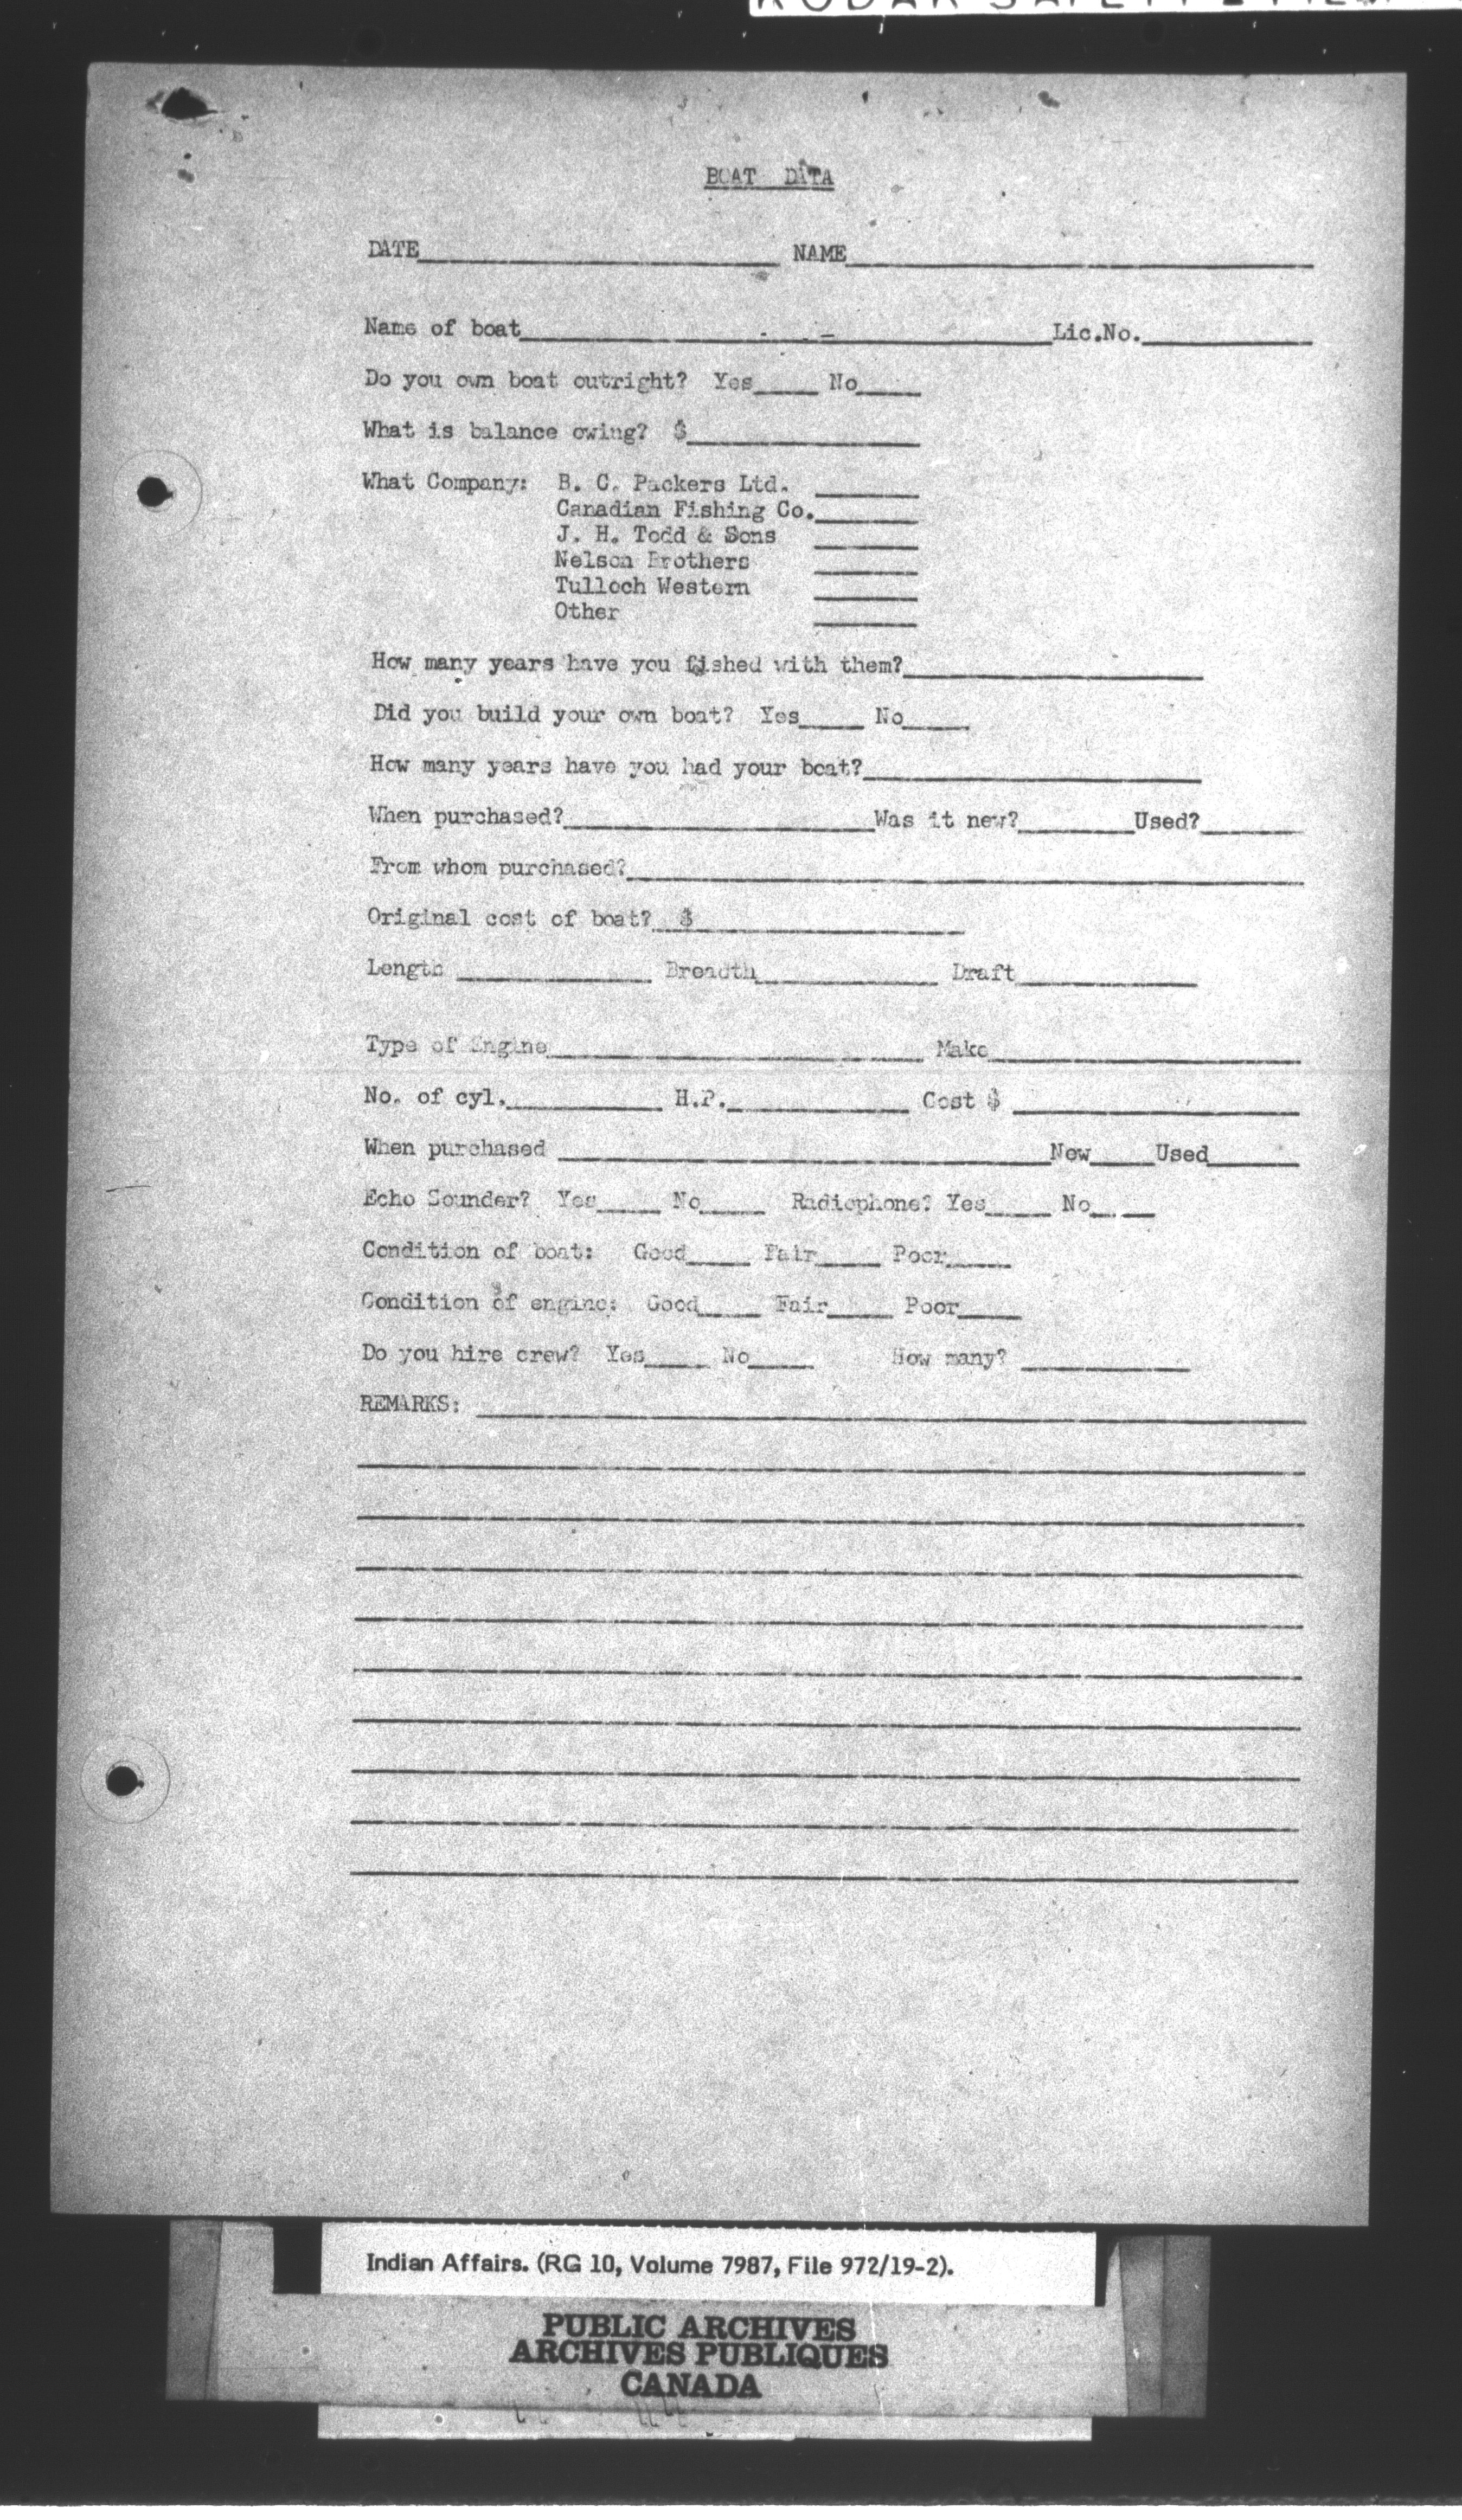 KODAK SAFETY FILM
BOAT DATA
DATE____________________ NAME____________________
Name of boat____________________Lic.No.__________
Do you own boat outright? Yes_____ No_____
What is balance owing? $__________________
What Company: B. C. Packers Ltd. ________
Canadian Fishing Co.________
J. H. Todd & Sons ________
Nelson Brothers ________
Tulloch Western ________
Other ________
How many years have you fished with them?____________________
Did you build your own boat? Yes_____ No_____
How many years have you had your boat?____________________
When purchased?____________________Was it new?_________Used?________
From whom purchased?____________________
Original cost of boat? $____________________
Length _______________ Breadth______________ Draft______________
Type of Engine____________________ Make____________________
No. of cyl.____________ H.P.______________ Cost $ ____________________
When purchased ____________________New_____Used_______
Echo Sounder? Yes_____ No_____ Radiophone? Yes_____ No_____
Condition of boat: Good_____ Fair_____ Poor_____
Condition of engine: Good_____ Fair_____ Poor_____
Do you hire crew? Yes_____ No_____ How many? _____________
REMARKS: ____________________
Indian Affairs. (RG 10, Volume 7987, File 972/19-2).
PUBLIC ARCHIVES
ARCHIVES PUBLIQUES
CANADA